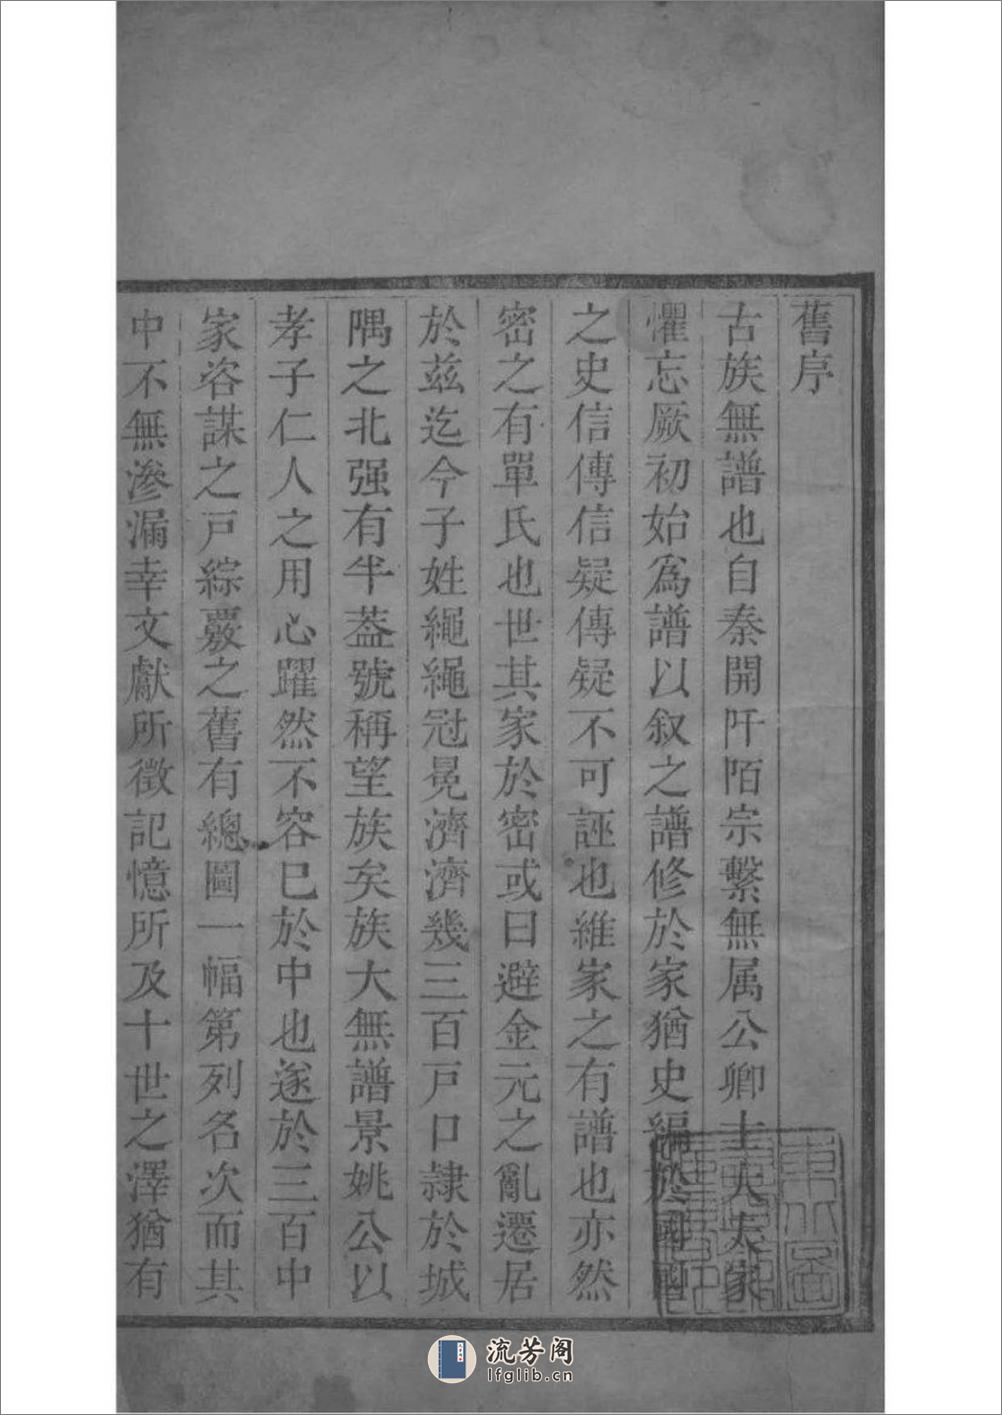 舊序
古族無譜也自秦開阡陌宗繫無属公卿士大夫家
懼忘厥初始爲譜以叙之譜修於家猶史編於國國
之史信傳信疑傳疑不可誣也維家之有譜也亦然
密之有單氏也世其家於密或曰避金元之亂遷居
於茲迄今子姓繩繩冠冕濟濟幾三百戸口隷於城
隅之北强有半葢號稱望族矣族大無譜景姚公以
孝子仁人之用心躍然不容已於中也遂於三百中
家咨謀之戸綜覈之舊有總圖一幅第列名次而其
中不無滲漏幸文獻所徵記憶所及十世之澤猶有
流芳阁
lfglib.cn